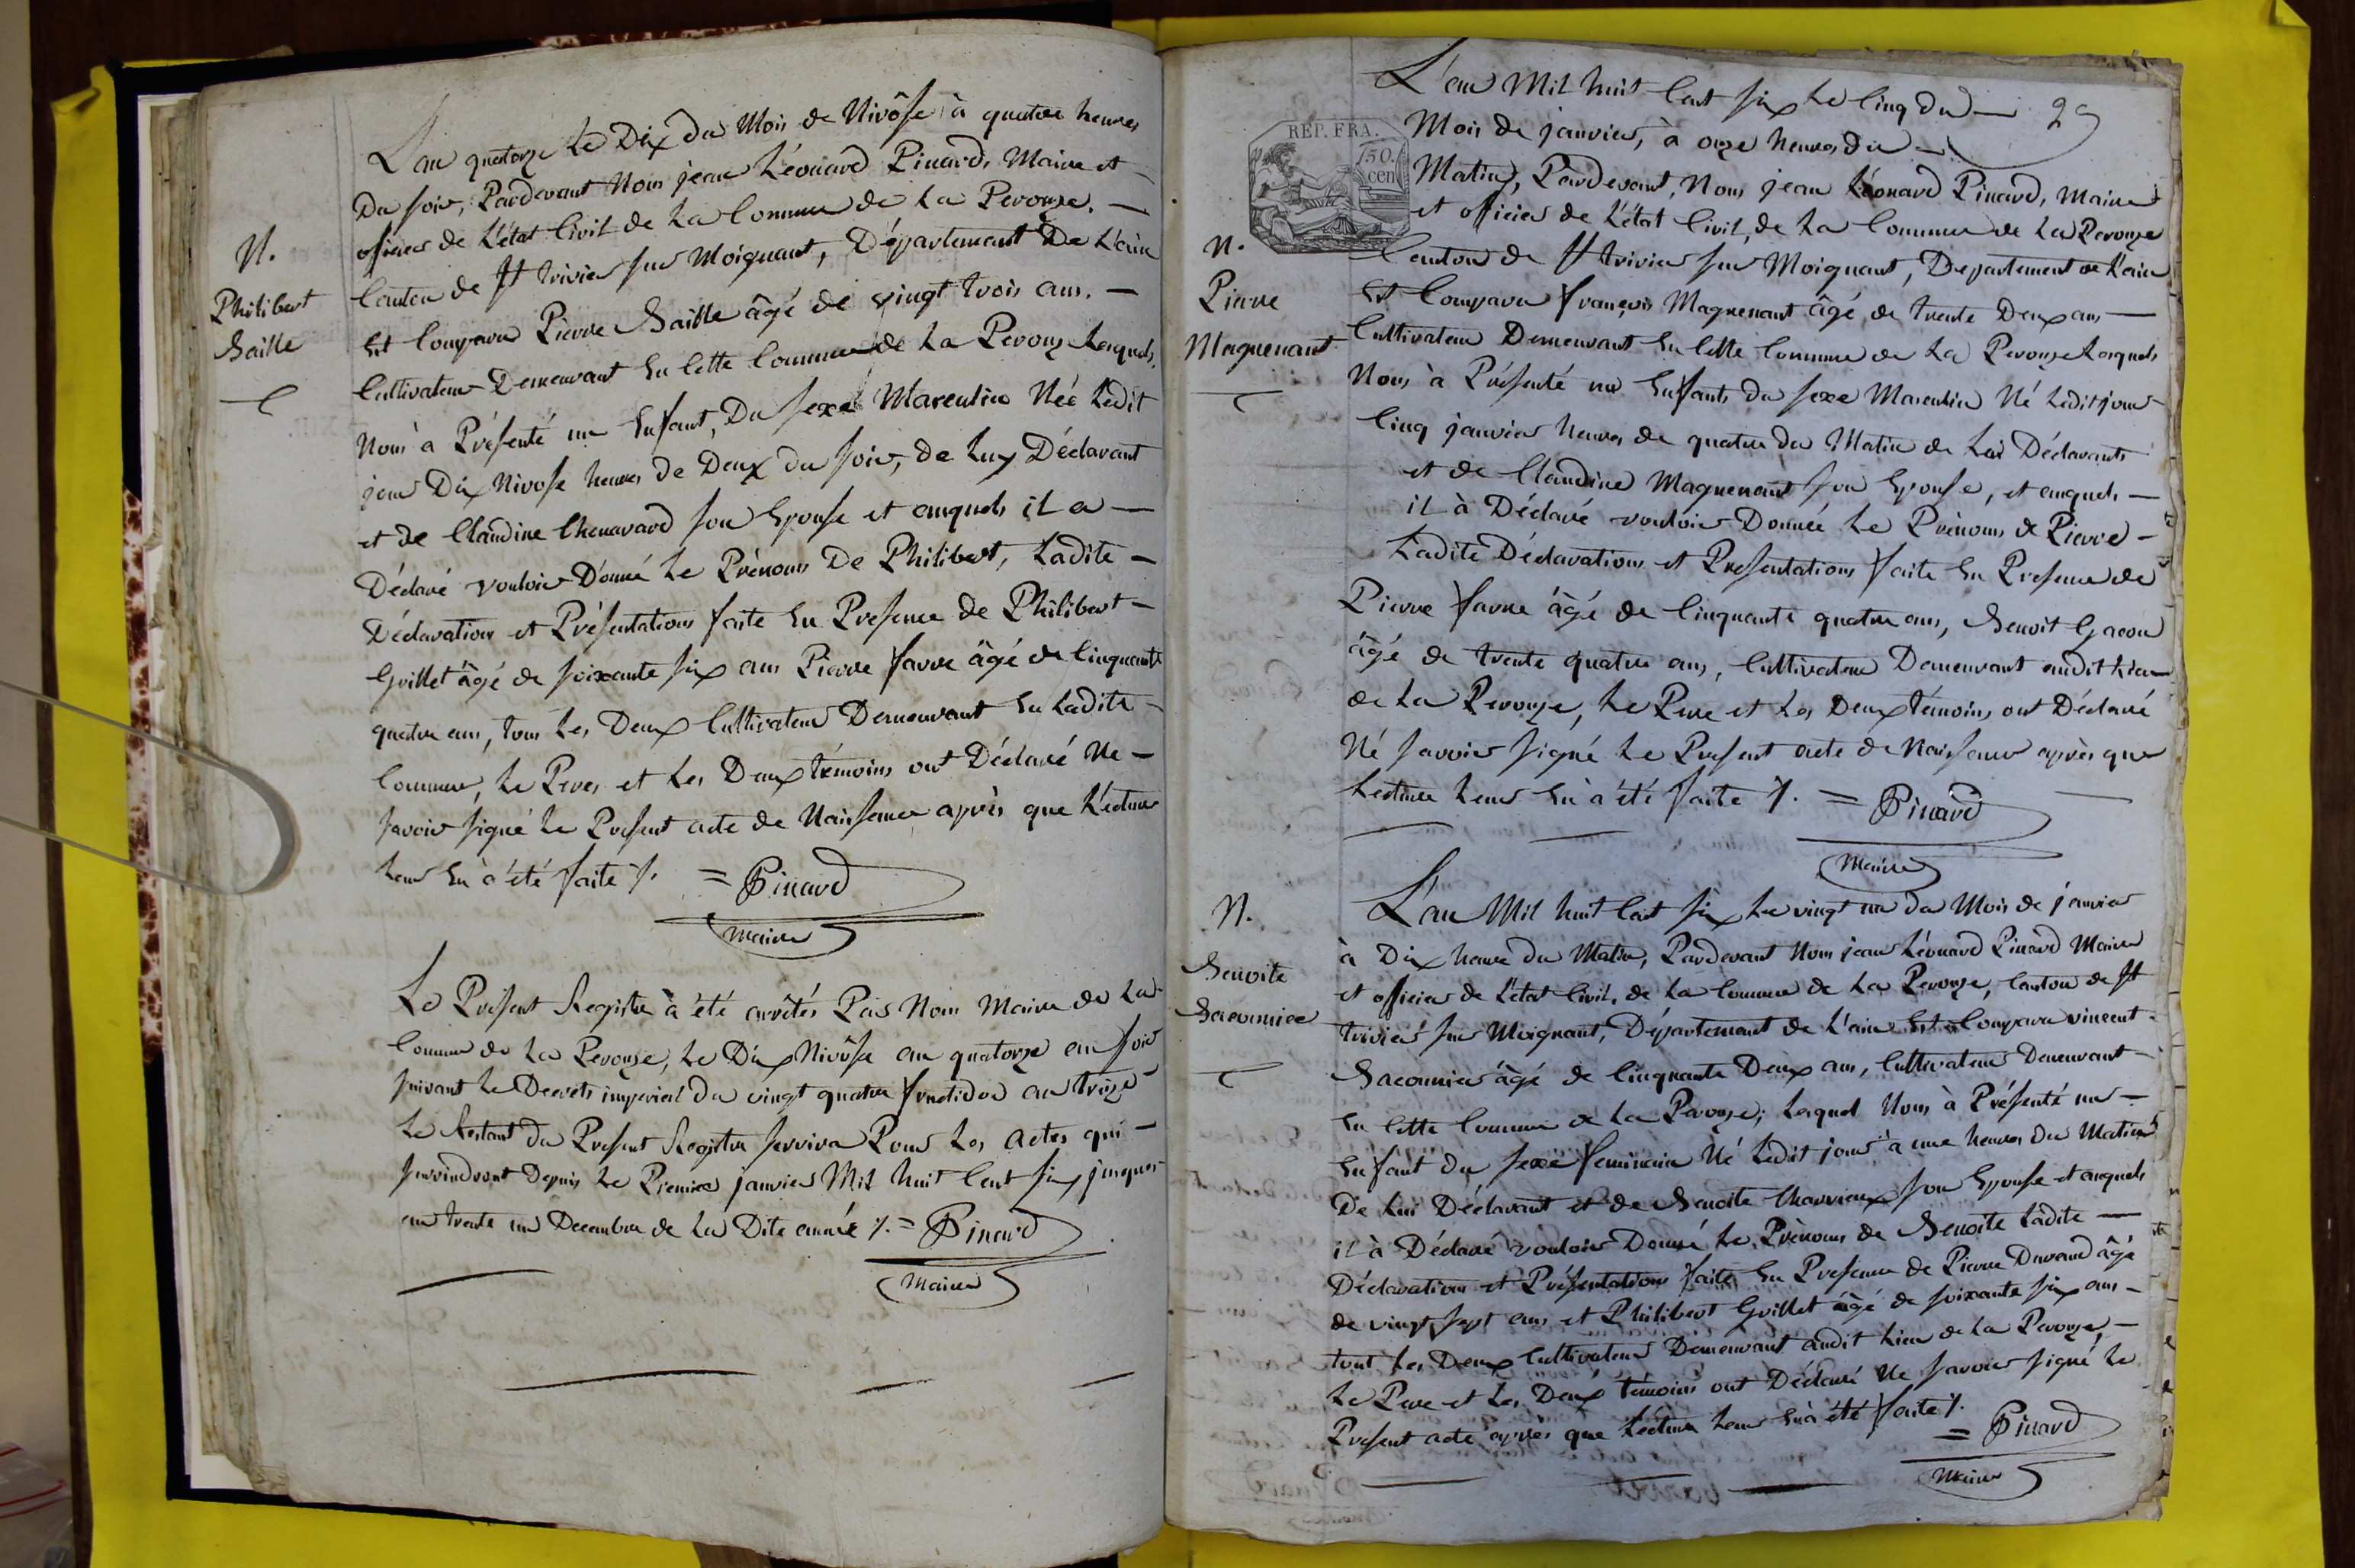 L'an quatorze le Dix du Mois de Nivôse à quatre heures
Du soir, Pardevant Nous jean Léonard Pinard, Maire et
officier de L'état Civil de La Commune de La Perouze.
N.
Canton de St trivier sur Moignant, Département De L'ain
Philibert
Est Comparu Pierre Baille âgé de vingt trois ans.
Baille
Cultivateur Demeurant En Cette Commune de La Perouze Lequels,
Nous à Présenté un Enfant, Du sexe Masculin Néé Ledit
jour Dix Nivose heures de Deux du soir, de Luy Déclarant
et de Claudine Chenavard son Epouse et auquels il a
Déclaré vouloir Donné Le Prénoms De Philibert, Ladite
Déclaration et Présentations faite En Presence de Philibert
Goillet âgé de soixante six ans Pierre favre âgé de Cinquante
quatre ans, tous Les Deux Cultivateur Demeurant En Ladite
Commune, Le Peres et Les Deux témoins ont Déclaré Ne
savoir signé Le Present acte de Naissance après que Lecture
Leur En à été faite %. = Pinard
maire
Le Present Registre à été arrêtés Par Nous Maire de La
Commune de La Perouze, Le Dix Nivôse an quatorze au soir
suivant Le Decrets imperial Du vingt quatre fructidor an treize
Le Restant du Present Registre servira Pour Les actes qui
surviendront Depuis Le Premier janvier Mil huit Cent six jusques
au trente un Decembre de La Dite année %. = Pinard
Maire
L'an Mil huit Cent six Le Cinq du 29
REP. FRA.
150.
cen
Mois de janvier, à onze heures du
Matin, Pardevant, Nous jean Léonard Pinard, Maire
et oficier de L'état Civil, de La Commune de La Perouze
N.
Canton de St trivier sur Moignant, Departement de L'ain
Pierre
Est Comparu françois Maguenant âgé de trente Deux ans
Maguenant
Cultivateur Demeurant En Cette Commune de La Perouze Lequels
Nous à Présenté un Enfants du sexe Masculin Né Ledit jour
Cinq janvier heures de quatre du Matin de Lui Déclarants
et de Claudine Maguenant son Epouse, et auquels
il à Déclaré vouloir Donnée Le Prénoms de Pierre
Ladite Déclarations et Presentations faite En Presence de
Pierre favre âgé de Cinquante quatre ans, Benoit Gacon
âgé de trente quatre ans, Cultivateur Demeurant audit Lieu
de La Perouze, Le Pere et Les Deux témoins ont Déclaré
Né savoir signé Le Present acte de Naissance après que
Lecture Leur En à été faite %. = Pinard
Maire
N.
L'an Mil huit Cent six Le vingt un du Mois de janvier
à Dix heure du Matin, Pardevant Nous jean Léonard Pinard Maire
Benoite
et officier de L'état Civil, de La Commune de La Perouze, Canton de St
Saconnier
trivier sur Moignant, Département de L'ain Est Comparu vincent
Saconnier âgé de Cinquante Deux ans, Cultivateur Demeurant
En Cette Commune de La Perouze, Lequel Nous à Présenté un
Enfant du sexe feminein Né Ledit jour à une heures du Matin
De Lui Déclarant et de Benoite Charvieux son Epouse et auquels
il à Déclaré vouloir Donné Le Prénoms de Benoite Ladite
Déclaration et Présentations faite En Presence de Pierre Durand âgé
de vingt sept ans et Philibert Goillet âgé de soixante six ans
tout Les Deux Cultivateur Demeurant audit Lieu de La Perouze,
Le Pere et Les Deux témoins ont Déclaré Ne savoir signé Le
Present acte après que Lecture Leur En à été faite %.
= Pinard
Maire